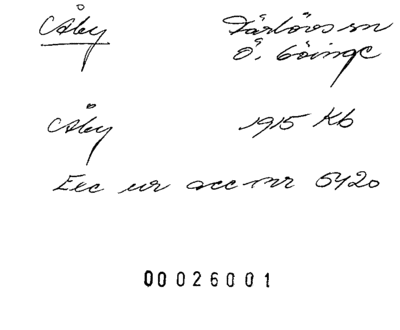 Åby Färlövs sn
Ö. Göinge
Åby 1915 Kb
Exc ur acc nr 5420
00026001